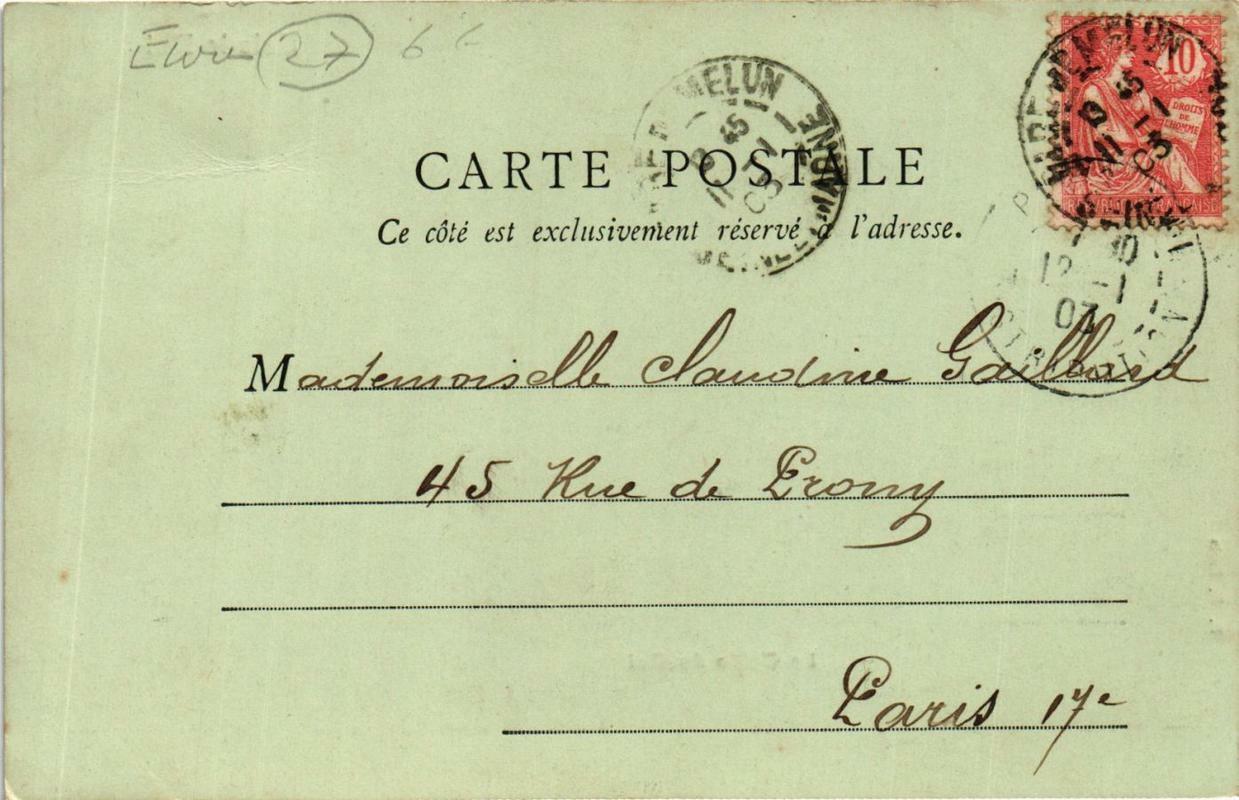 27 6 €
MELUN
10
DROITS
DE
L'HOMME
MELUN
CARTE POSTALE
Ce côté est exclusivement réservé à l'adresse.
12
03
Mademoiselle Claudine Gaillard
45 Rue de Prony
Paris 17e